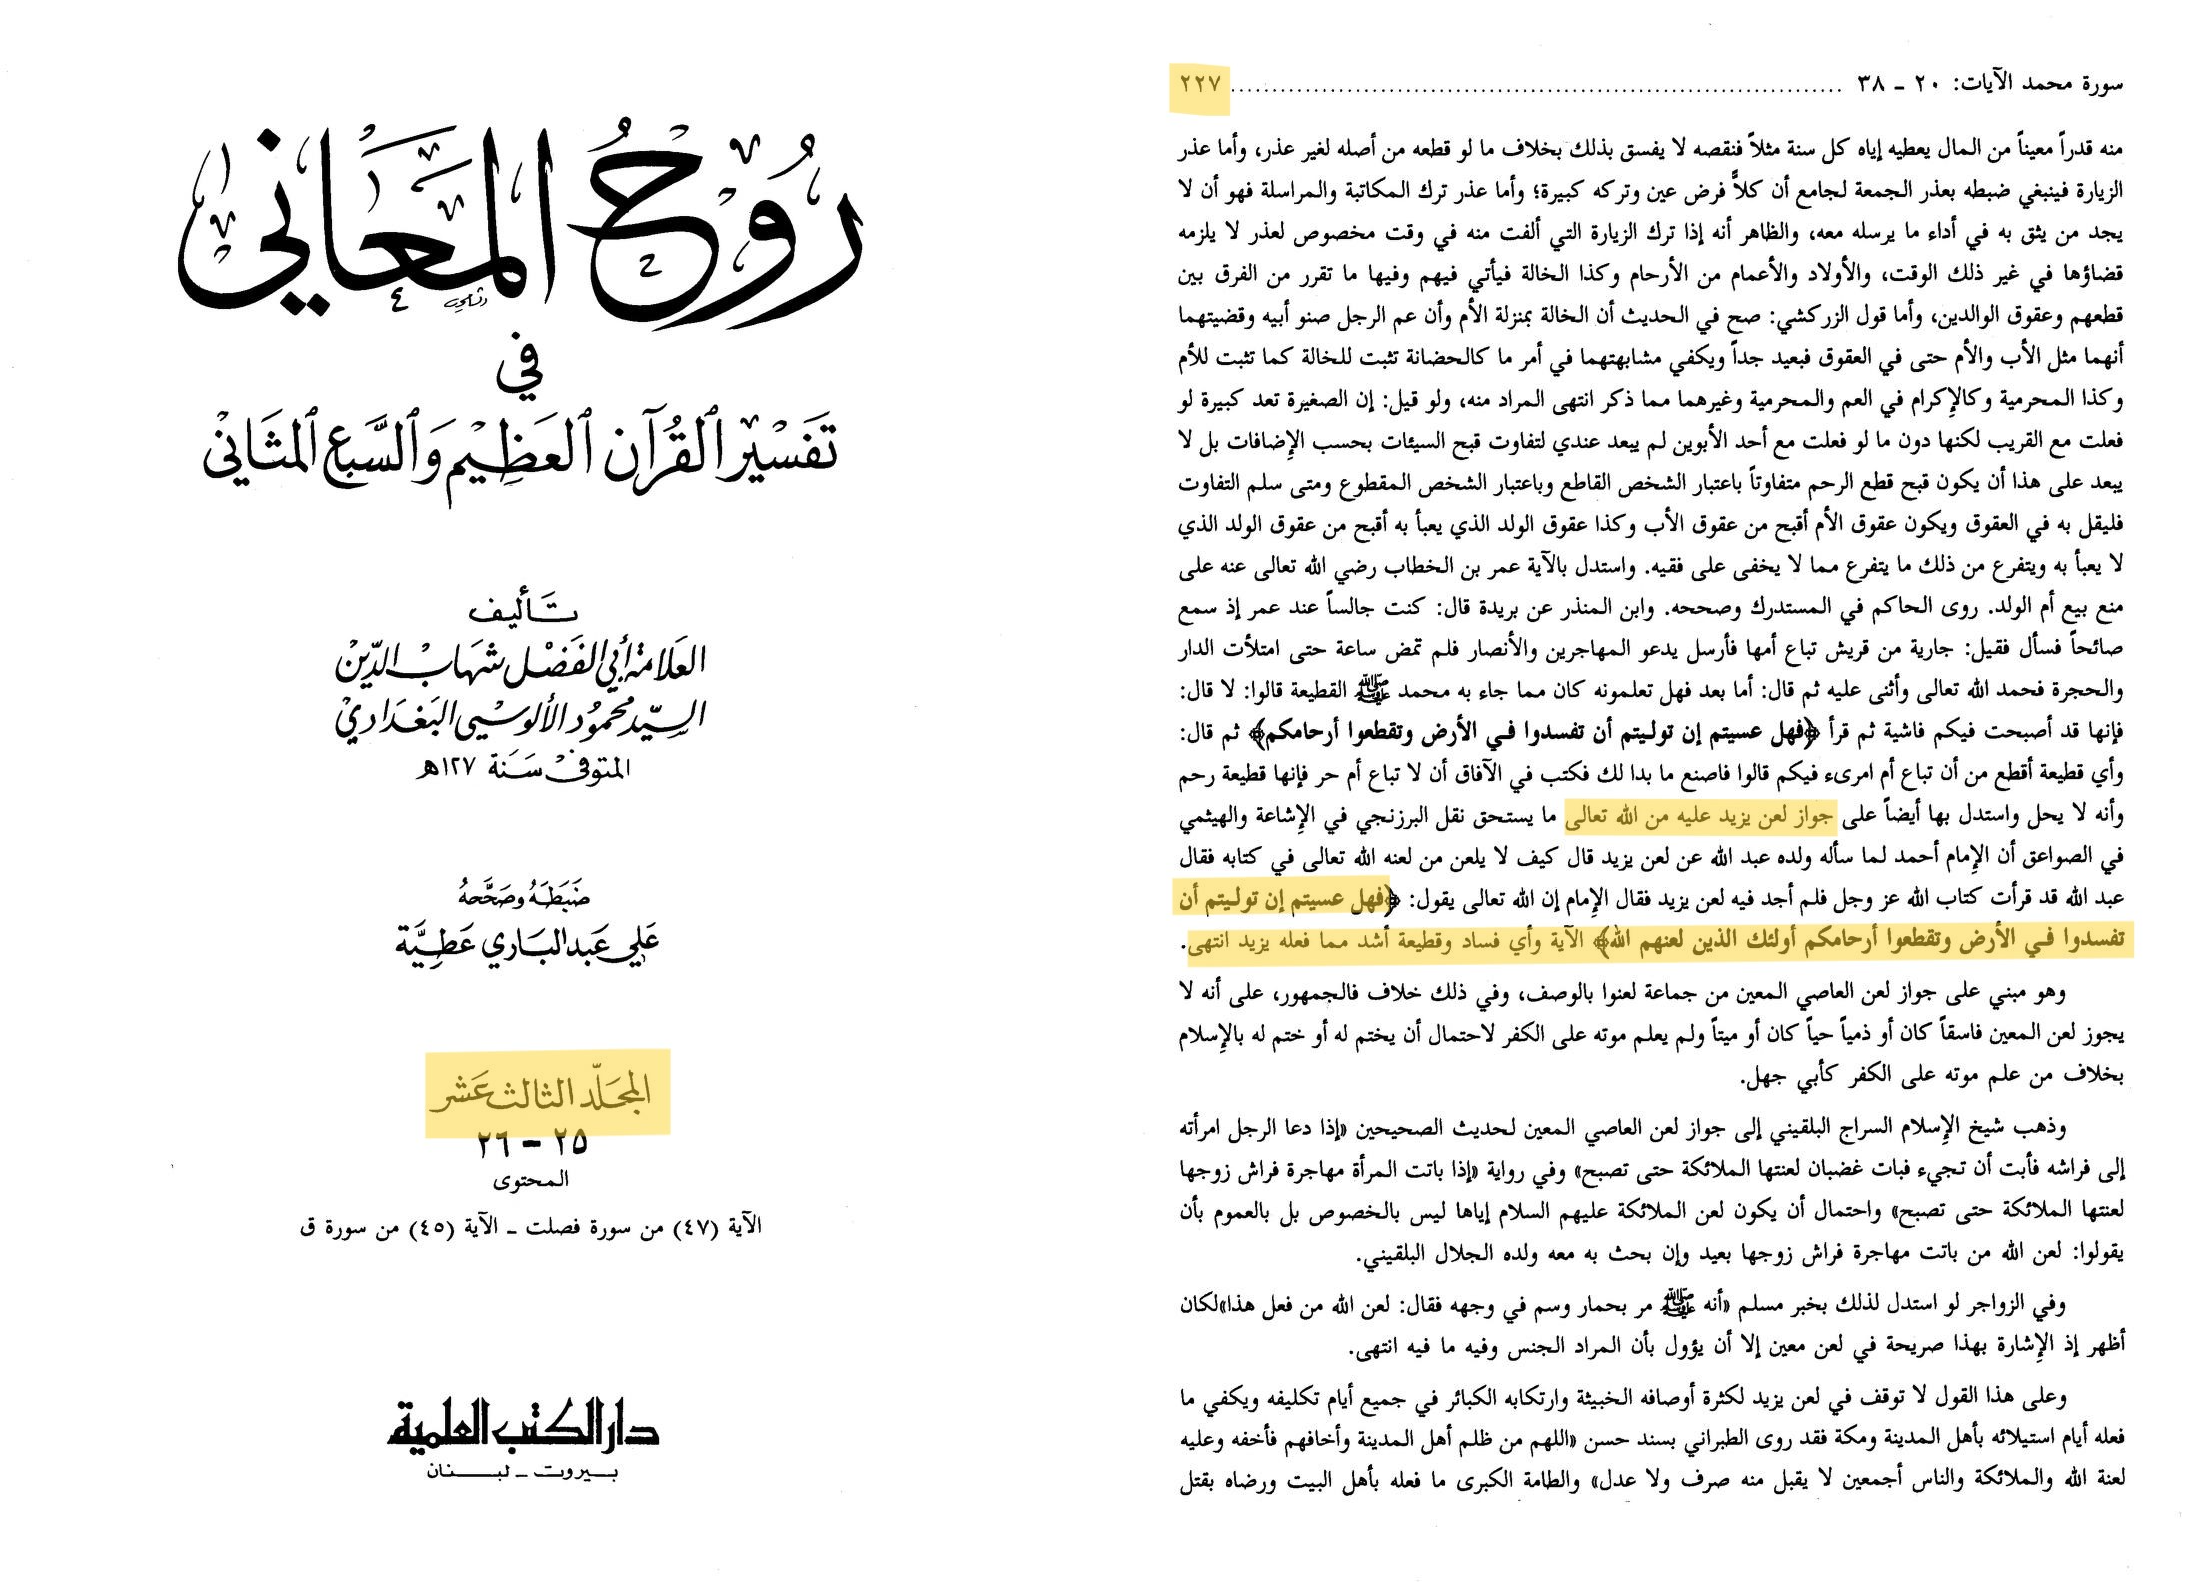 رُوحُ المَعَاني
في
تَفسِير القُرآن العَظِيم وَالسَّبع المثَاني
تَأليف
العَلامة أبي الفَضل شهَاب الدّين
السيّد محمُود الألوسي البَغدَادي
المتوفى سَنَة ١٢٧ه
ضَبَطَهُ وصَحَّحهُ
عَلي عَبد البَاري عَطيَّة
المجَلّد الثالث عَشر
٢٥ - ٢٦
المحتوى
الآية (٤٧) من سورة فصلت ـ الآية (٤٥) من سورة ق
دار الكتب العلمية
بيروت ـ لبنان
سورة محمد الآيات: ٢٠ ـ ٣٨ ........................ ٢٢٧
منه قدراً معيناً من المال يعطيه إياه كل سنة مثلاً فنقصه لا يفسق بذلك بخلاف ما لو قطعه من أصله لغير عذر، وأما عذر
الزيارة فينبغي ضبطه بعذر الجمعة لجامع أن كلاًّ فرض عين وتركه كبيرة؛ وأما عذر ترك المكاتبة والمراسلة فهو أن لا
يجد من يثق به في أداء ما يرسله معه، والظاهر أنه إذا ترك الزيارة التي ألفت منه في وقت مخصوص لعذر لا يلزمه
قضاؤها في غير ذلك الوقت، والأولاد والأعمام من الأرحام وكذا الخالة فيأتي فيهم وفيها ما تقرر من الفرق بين
قطعهم وعقوق الوالدين، وأما قول الزركشي: صح في الحديث أن الخالة بمنزلة الأم وأن عم الرجل صنو أبيه وقضيتهما
أنهما مثل الأب والأم حتى في العقوق فبعيد جداً ويكفي مشابهتهما في أمر ما كالحضانة تثبت للخالة كما تثبت للأم
وكذا المحرمية وكالإكرام في العم والمحرمية وغيرهما مما ذكر انتهى المراد منه، ولو قيل: إن الصغيرة تعد كبيرة لو
فعلت مع القريب لكنها دون ما لو فعلت مع أحد الأبوين لم يبعد عندي لتفاوت قبح السيئات بحسب الإضافات بل لا
يبعد على هذا أن يكون قبح قطع الرحم متفاوتاً باعتبار الشخص القاطع وباعتبار الشخص المقطوع ومتى سلم التفاوت
فليقل به في العقوق ويكون عقوق الأم أقبح من عقوق الأب وكذا عقوق الولد الذي يعبأ به أقبح من عقوق الولد الذي
لا يعبأ به ويتفرع من ذلك ما يتفرع مما لا يخفى على فقيه. واستدل بالآية عمر بن الخطاب رضي الله تعالى عنه على
منع بيع أم الولد. روى الحاكم في المستدرك وصححه. وابن المنذر عن بريدة قال: كنت جالساً عند عمر إذ سمع
صائحاً فسأل فقيل: جارية من قريش تباع أمها فأرسل يدعو المهاجرين والأنصار فلم تمض ساعة حتى امتلأت الدار
والحجرة فحمد الله تعالى وأثنى عليه ثم قال: أما بعد فهل تعلمونه كان مما جاء به محمد ﷺ القطيعة قالوا: لا قال:
فإنها قد أصبحت فيكم فاشية ثم قرأ ﴿فهل عسيتم إن توليتم أن تفسدوا في الأرض وتقطعوا أرحامكم﴾ ثم قال:
وأي قطيعة أقطع من أن تباع أم امرىء فيكم قالوا فاصنع ما بدا لك فكتب في الآفاق أن لا تباع أم حر فإنها قطيعة رحم
وأنه لا يحل واستدل بها أيضاً على جواز لعن يزيد عليه من الله تعالى ما يستحق نقل البرزنجي في الإشاعة والهيثمي
في الصواعق أن الإمام أحمد لما سأله ولده عبد الله عن لعن يزيد قال كيف لا يلعن من لعنه الله تعالى في كتابه فقال
عبد الله قد قرأت كتاب الله عز وجل فلم أجد فيه لعن يزيد فقال الإمام إن الله تعالى يقول: ﴿فهل عسيتم إن توليتم أن
تفسدوا في الأرض وتقطعوا أرحامكم أولئك الذين لعنهم الله﴾ الآية وأي فساد وقطيعة أشد مما فعله يزيد انتهى.
وهو مبني على جواز لعن العاصي المعين من جماعة لعنوا بالوصف، وفي ذلك خلاف فالجمهور، على أنه لا
يجوز لعن المعين فاسقاً كان أو ذمياً حياً كان أو ميتاً ولم يعلم موته على الكفر لاحتمال أن يختم له أو ختم له بالإسلام
بخلاف من علم موته على الكفر كأبي جهل.
وذهب شيخ الإسلام السراج البلقيني إلى جواز لعن العاصي المعين لحديث الصحيحين «إذا دعا الرجل امرأته
إلى فراشه فأبت أن تجيء فبات غضبان لعنتها الملائكة حتى تصبح» وفي رواية «إذا باتت المرأة مهاجرة فراش زوجها
لعنتها الملائكة حتى تصبح» واحتمال أن يكون لعن الملائكة عليهم السلام إياها ليس بالخصوص بل بالعموم بأن
يقولوا: لعن الله من باتت مهاجرة فراش زوجها بعيد وإن بحث به معه ولده الجلال البلقيني.
وفي الزواجر لو استدل لذلك بخبر مسلم «أنه ﷺ مر بحمار وسم في وجهه فقال: لعن الله من فعل هذا»لكان
أظهر إذ الإشارة بهذا صريحة في لعن معين إلا أن يؤول بأن المراد الجنس وفيه ما فيه انتهى.
وعلى هذا القول لا توقف في لعن يزيد لكثرة أوصافه الخبيثة وارتكابه الكبائر في جميع أيام تكليفه ويكفي ما
فعله أيام استيلائه بأهل المدينة ومكة فقد روى الطبراني بسند حسن «اللهم من ظلم أهل المدينة وأخافهم فأخفه وعليه
لعنة الله والملائكة والناس أجمعين لا يقبل منه صرف ولا عدل» والطامة الكبرى ما فعله بأهل البيت ورضاه بقتل